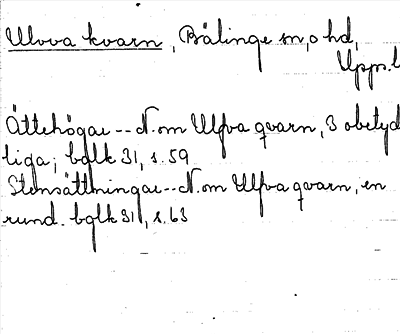 Ulova kvarn, Bälinge sn, o hd,
Upps. l
Ättehögar -- N. om Ulfva qvarn, 3 obetyd
liga; bglk 31, s. 59
Stensättningar -- N. om Ulfva qvarn, en
rund. bglk 31, s. 63